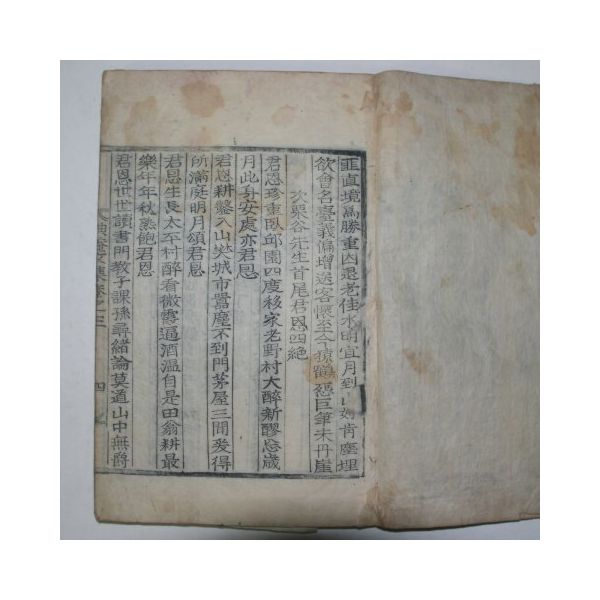 匪直境爲勝重函還老佳水明宜月到山媚肯塵埋
欲會名臺義偏增送客懷至今猿鶴怨巨筆未丹崖
次栗谷先生首尾君恩四絶
君恩珍重臥邱園四度移家老野村大醉新醪忘歲
月此身安處亦君恩
君恩耕鑿入山樊城市囂塵不到門茅屋三間爰得
所滿庭明月頌君恩
君恩生長太平村醉看微霞逼酒溫自是田翁耕最
樂年年秋熟飽君恩
君恩世世讀書門教子課孫尋緒論莫道山中無爵
文集卷之三
四